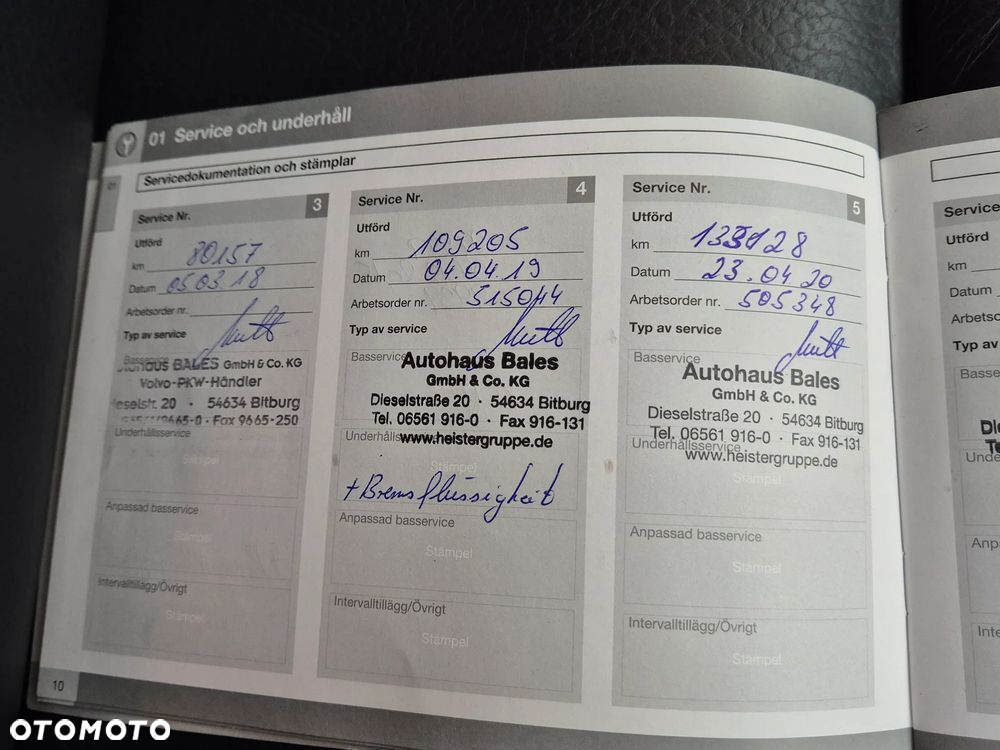 01 Service och underhåll
Servicedokumentation och stämplar
01
Service Nr. 3
Utförd
km 80157
Datum 05 03 18
Arbetsorder nr.
Typ av service
Basservice
BALES GmbH & Co. KG
Volvo-PKW-Händler
20 · 54634 Bitburg
Fax 9665-250
Underhållsservice
Stämpel
Anpassad basservice
Stämpel
Intervalltillägg/Övrigt
Stämpel
Service Nr. 4
Utförd
km 109205
Datum 04.04.19
Arbetsorder nr.
Typ av service
Basservice
Autohaus Bales
GmbH & Co. KG
Dieselstraße 20 · 54634 Bitburg
Tel. 06561 916-0 · Fax 916-131
www.heistergruppe.de
Stämpel
+ Bremsflüssigkeit
Anpassad basservice
Stämpel
Intervalltillägg/Övrigt
Stämpel
Service Nr. 5
Utförd
km
Datum 23.04.20
Arbetsorder nr. 505348
Typ av service
Basservice
Autohaus Bales
GmbH & Co. KG
Dieselstraße 20 · 54634 Bitburg
Tel. 06561 916-0 · Fax 916-131
Underhållsservice
www.heistergruppe.de
Stämpel
Anpassad basservice
Stämpel
Intervalltillägg/Övrigt
Stämpel
Service
Utförd
km
Datum
Typ av
10
OTOMOTO